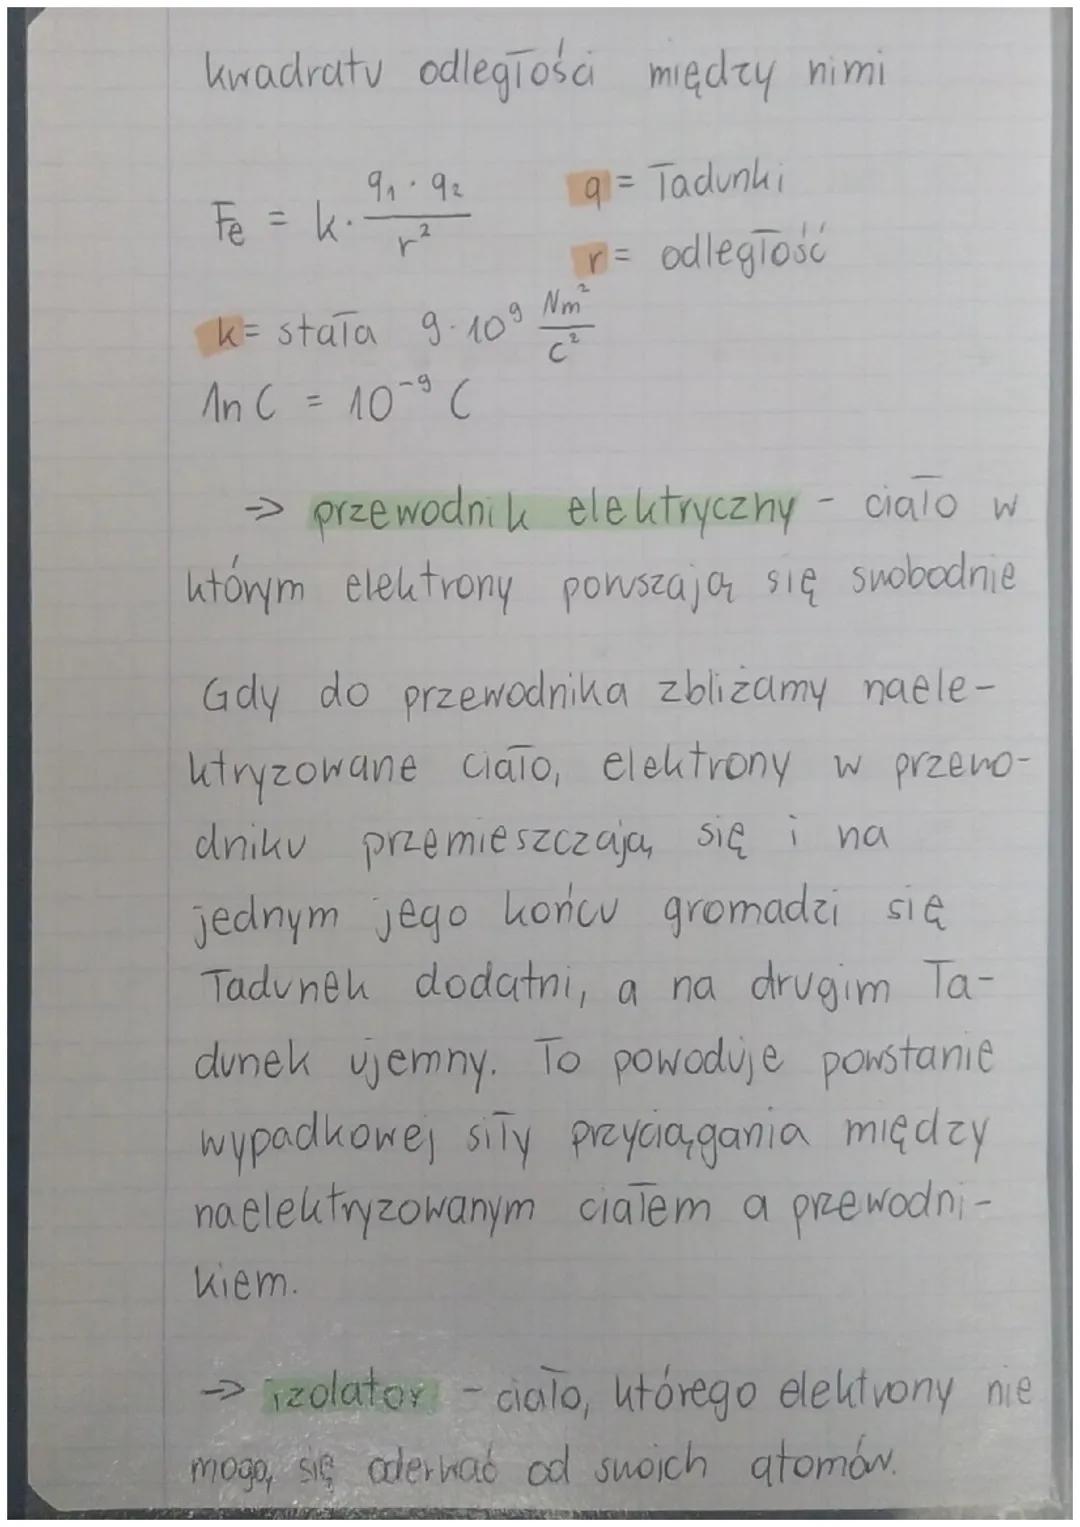 kwadratu odległości między nimi
Fe = k · q₁ · q₂ / r²
q = ładunki
r = odległość
k = stała 9 · 10⁹ Nm² / C²
1n C = 10⁻⁹ C
→ przewodnik elektryczny - ciało w
którym elektrony poruszają się swobodnie
Gdy do przewodnika zbliżamy naele-
ktryzowane ciało, elektrony w przewo-
dniku przemieszczają się i na
jednym jego końcu gromadzi się
ładunek dodatni, a na drugim ła-
dunek ujemny. To powoduje powstanie
wypadkowej siły przyciągania między
naelektryzowanym ciałem a przewodni-
kiem.
→ izolator - ciało, którego elektrony nie
mogą się oderwać od swoich atomów.